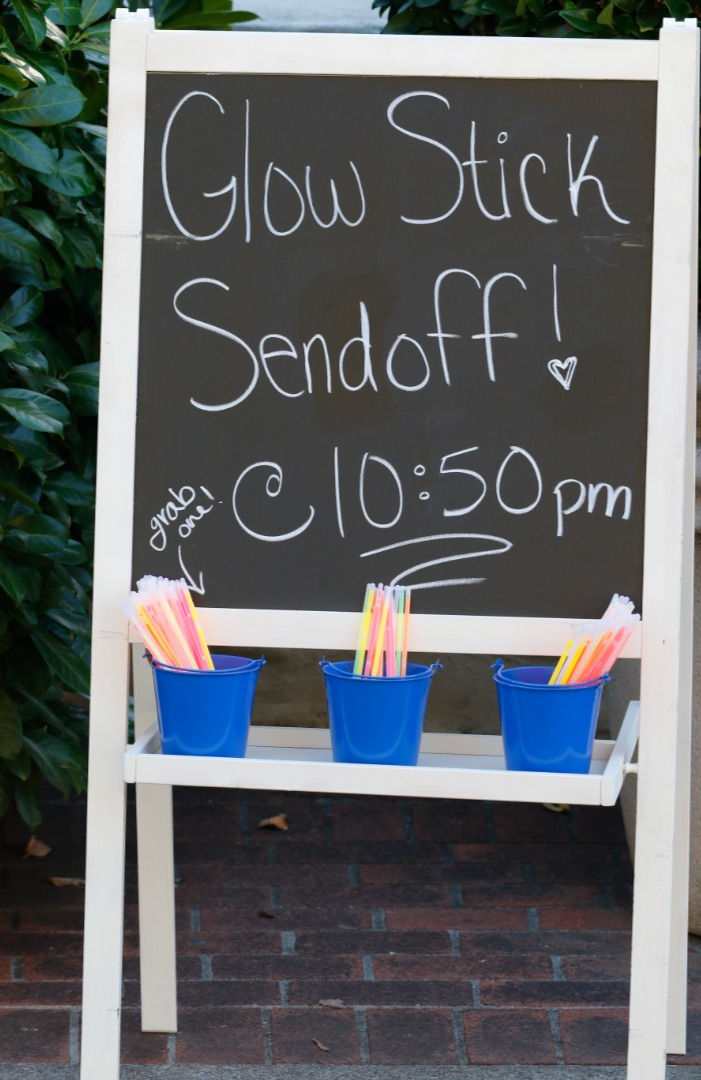 Glow Stick
Sendoff!
@ 10:50pm
grab
one!